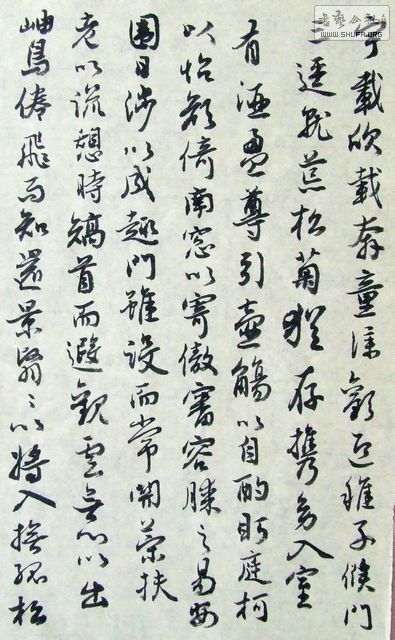 宇載欣載奔童僕歡迎稚子候門
三逕就荒松菊猶存攜幼入室
有酒盈尊引壺觴以自酌眄庭柯
以怡顏倚南窓以寄傲審容膝之易安
園日涉以成趣門雖設而常關策扶
老以流憩時矯首而遐觀雲無心以出
岫鳥倦飛而知還景翳々以將入撫孤松
書藝公社
WWW.SHUFA.ORG